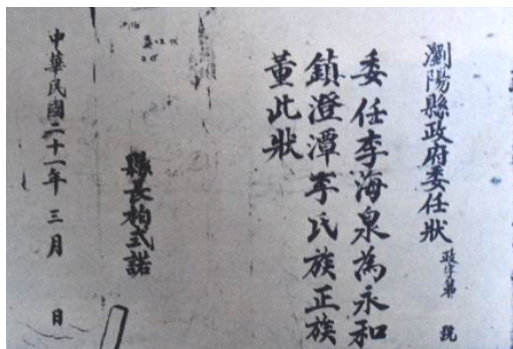 瀏陽縣政府委任狀
政字第 號
委任李海泉為永和
鎮澄潭李氏族正族
董此狀
縣長柏式諾
中華民國二十一年三月 日